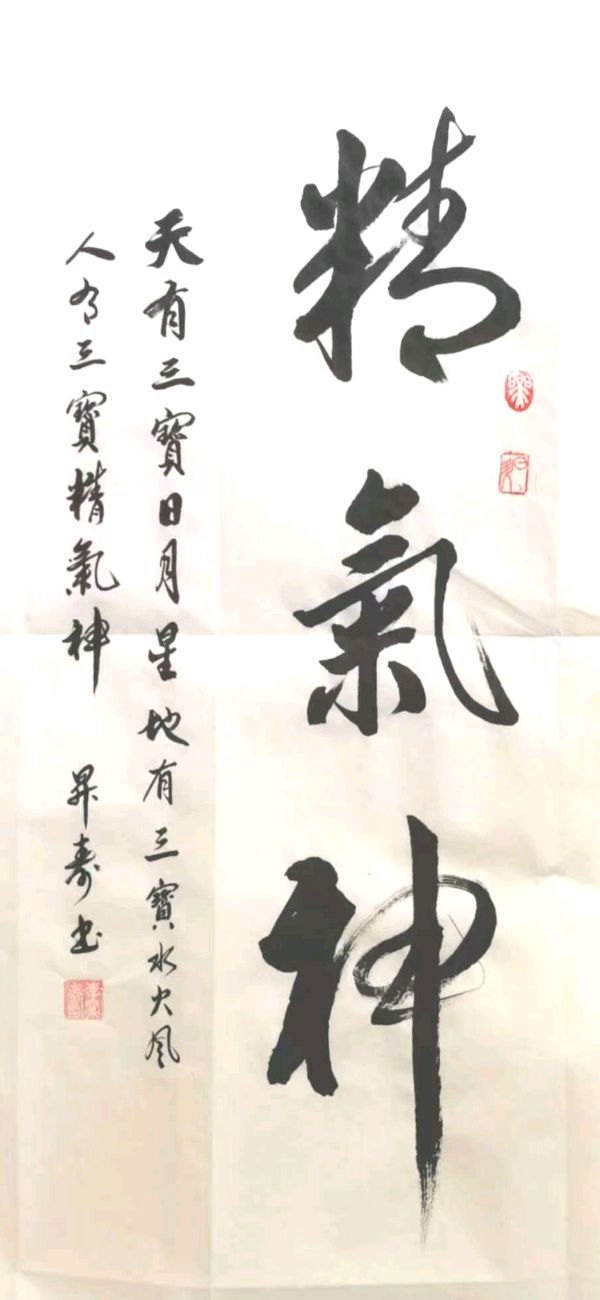 精氣神
天有三寶日月星地有三寶水火風
人有三寶精氣神
昇壽书